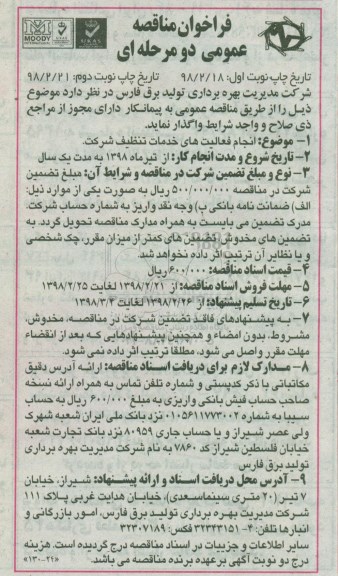 فراخوان مناقصه
عمومی دو مرحله ای
MOODY
INTERNATIONAL
تاریخ چاپ نوبت اول: ۹۸/۲/۱۸ تاریخ چاپ نوبت دوم: ۹۸/۲/۲۱
شرکت مدیریت بهره برداری تولید برق فارس در نظر دارد موضوع
ذیل را از طریق مناقصه عمومی به پیمانکار دارای مجوز از مراجع
ذی صلاح و واجد شرایط واگذار نماید.
۱- موضوع: انجام فعالیت های خدمات تنظیف شرکت.
۲- تاریخ شروع و مدت انجام کار: از تیرماه ۱۳۹۸ به مدت یک سال
۳- نوع و مبلغ تضمین شرکت در مناقصه و شرایط آن: مبلغ تضمین
شرکت در مناقصه ۵۰۰/۰۰۰/۰۰۰ ریال به صورت یکی از موارد ذیل:
الف) ضمانت نامه بانکی ب) وجه نقد واریز به شماره حساب شرکت.
مدرک تضمین می بایست به همراه مدارک مناقصه تحویل گردد. به
تضمین های مخدوش، تضمین های کمتر از میزان مقرر، چک شخصی
و یا نظایر آن ترتیب اثر داده نخواهد شد.
۴- قیمت اسناد مناقصه: ۶۰۰/۰۰۰ ریال
۵- مهلت فروش اسناد مناقصه: از ۱۳۹۸/۲/۲۱ لغایت ۱۳۹۸/۲/۲۵
۶- تاریخ تسلیم پیشنهاد: از ۱۳۹۸/۲/۲۶ لغایت ۱۳۹۸/۳/۴
۷- به پیشنهادهای فاقد تضمین شرکت در مناقصه، مخدوش،
مشروط، بدون امضاء و همچنین پیشنهادهایی که بعد از انقضاء
مهلت مقرر واصل می شود، مطلقا ترتیب اثر داده نمی شود.
۸- مدارک لازم برای دریافت اسناد مناقصه: ارائه آدرس دقیق
مکاتباتی با ذکر کدپستی و شماره تلفن تماس به همراه ارائه نسخه
صاحب حساب فیش بانکی واریزی به مبلغ ۶۰۰/۰۰۰ ریال به حساب
سیبا به شماره ۰۱۰۵۶۱۱۷۷۳۰۰۲ نزد بانک ملی ایران شعبه شهرک
ولی عصر شیراز و یا حساب جاری ۸۰۹۵۹ نزد بانک تجارت شعبه
خیابان فلسطین شیراز کد ۷۸۶۰ به نام شرکت مدیریت بهره برداری
تولید برق فارس
۹- آدرس محل دریافت اسناد و ارائه پیشنهاد: شیراز، خیابان
۷ تیر (۲۰ متری سینماسعدی)، خیابان هدایت غربی پلاک ۱۱۱
شرکت مدیریت بهره برداری تولید برق فارس، امور بازرگانی و
انبارها تلفن: ۴- ۳۲۳۴۳۱۵۱ فکس: ۳۲۳۰۷۱۸۹
سایر اطلاعات و جزییات در اسناد مناقصه درج گردیده است. هزینه
درج دو نوبت آگهی برعهده برنده مناقصه می باشد.